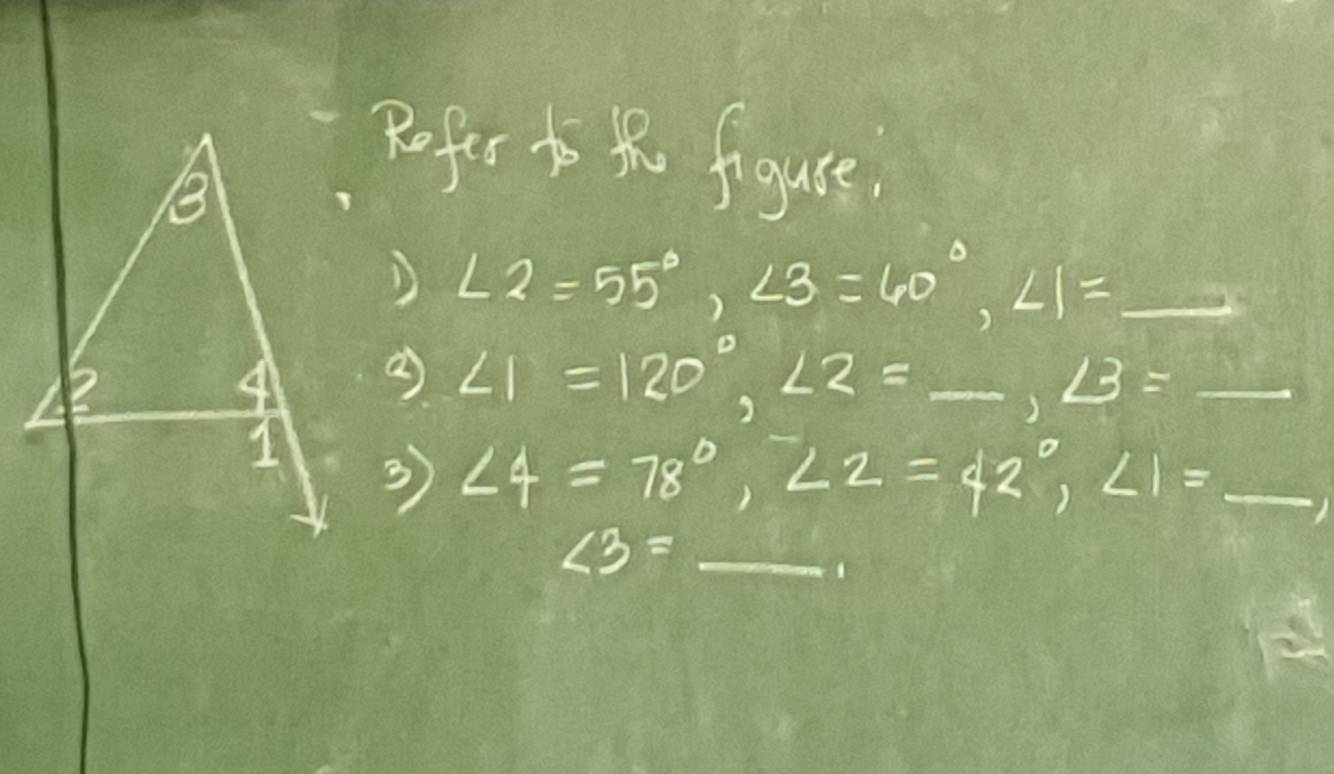 Refer to the figure.
1) ∠2 = 55°, ∠3 = 60°, ∠1 = ___
2) ∠1 = 120°, ∠2 = ___, ∠3 = ___
3) ∠4 = 78°, ∠2 = 42°, ∠1 = ___,
∠3 = ___.
3
2
4
1